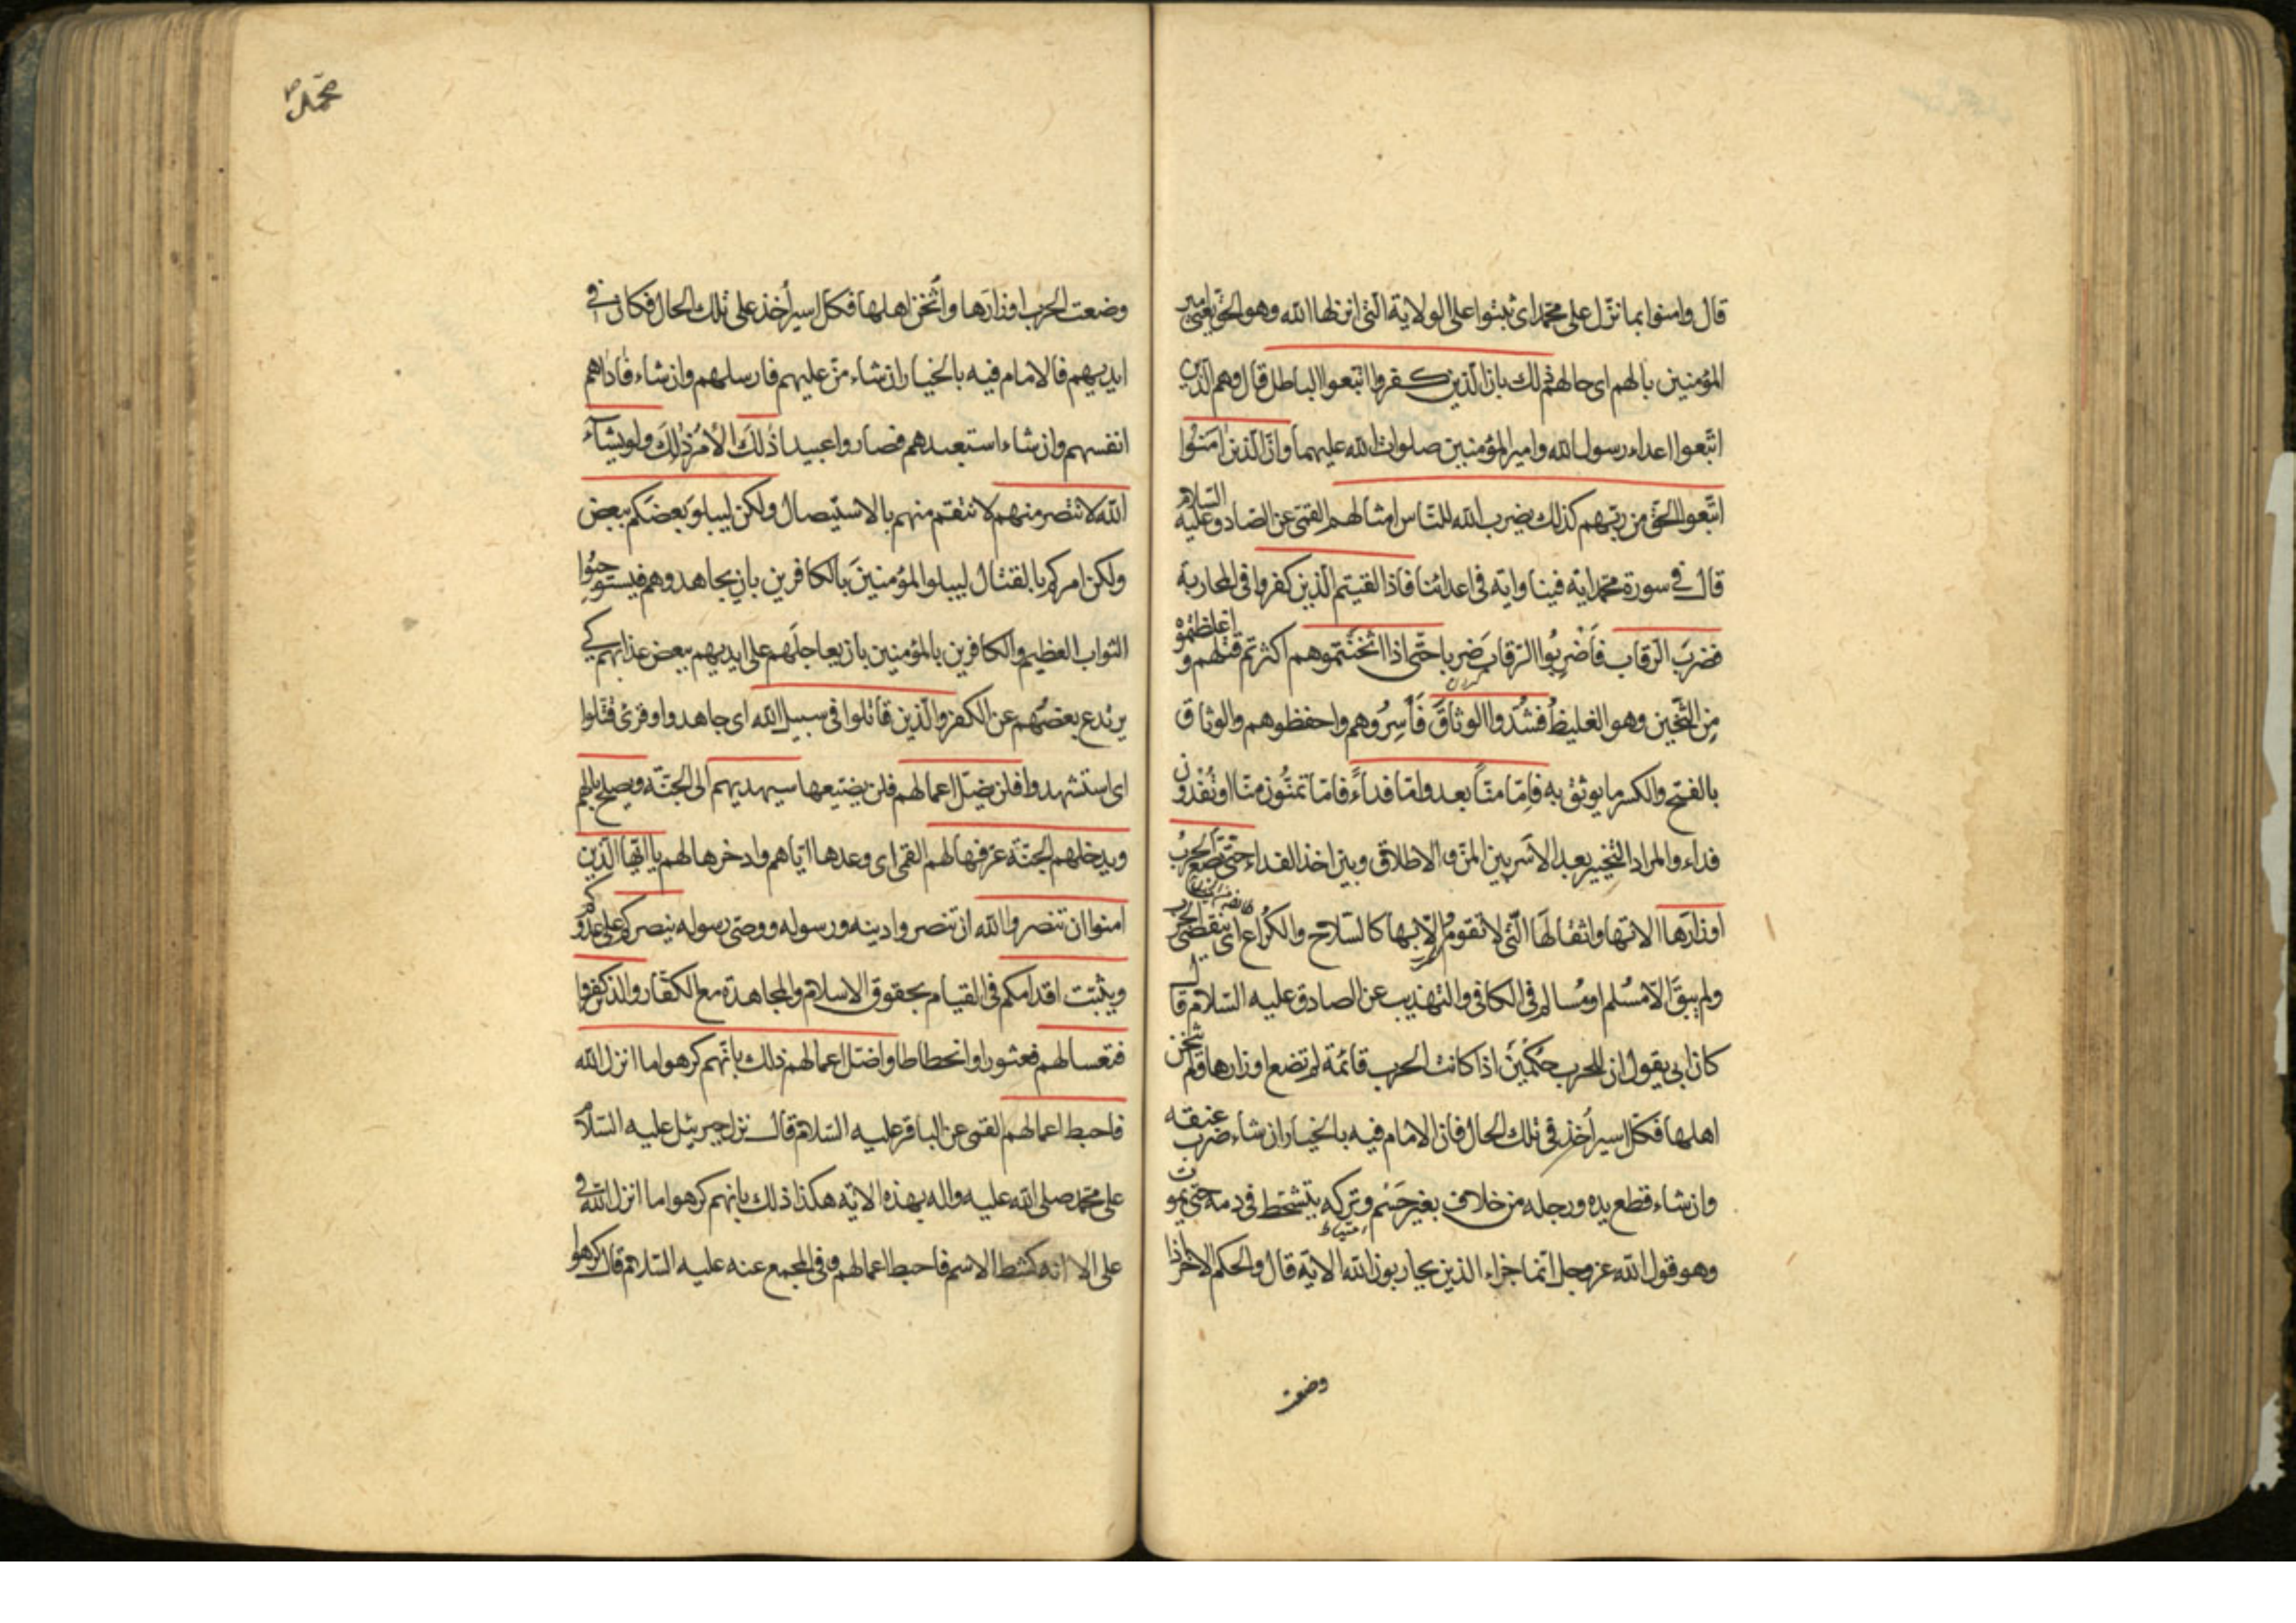 قال وامنوا بما نزّل على محمّد اى ثبتوا على الولاية الّتى انزلها الله وهو الحقّ يعنى امير
المؤمنين بالهم اى حالهم ذلك بان الّذين كفروا اتّبعوا الباطل قال وهم الّذين
اتّبعوا اعداء رسول الله وامير المؤمنين صلوات الله عليهما وانّ الّذين امَنُوا
اتّبعوا الحقّ من ربّهم كذلك يضرب الله للنّاس امثالهم القمّى عن الصّادق عليه السّلام
قال فى سورة محمّد اية فينا واية فى اعدائنا فاذا لقيتم الّذين كفروا فى المحاربة
فضربَ الرّقاب فَاضْرِبُوا الرّقاب ضَربا حتّى اذا اثخنتموهم اكثرتم قتلهم واغلظتموه
مِن الثّخين وهو الغليظ فشُدّوا الوثاقَ فَأسِرُوهم واحفظوهم والوثاق
بالفتح والكسر ما يوثق به فامّا منّاً بعد وامّا فداءً فامّا تمنّون منّا او تُفْدون
فداء والمراد التّخيير بعد الاَسر بين المنّ والاطلاق وبين اخذ الفداء حتّى تضعَ الحربُ
اوزارَها الاتها واثقالَها الّتى لا تقومُ الاّ بها كالسّلاح والكُراع اى ينقضى الحرب
ولم يبقَ الاّ مُسْلم او مُسالم فى الكافى والتهذيب عن الصادق عليه السّلام قال
كان ابى يقول ان للحرب حُكمَيْن اذا كانت الحرب قائمة لم تضع اوزارها ولم يثخن
اهلها فكلّ اسير اُخذ فى تلك الحال فان الامام فيه بالخيار ان شاء ضرب عنقه
وان شاء قطع يده ورجله من خلاف بغير حَسْم وتركه يتشحّط فى دمه حتّى يموت
وهو قول الله عزّ وجل انّما جزاء الذين يحاربون الله الاية قال والحكم الاخر اذا
وضعت
محمّد ص
وضعت الحرب اوزارَها واُثْخن اهلها فكلّ اسير اُخذ على تلك الحال فكان فى
ايديهم فالامام فيه بالخيار ان شاء منّ عليهم فارسلهم وان شاء فاداهم
انفسهم وان شاء استعبدهم فصاروا عبيدا ذلكَ الاَمْرُ ذلِكَ ولو يشآء
الله لانتصر منهم لانتقم منهم بالاستيصال ولكن ليبلوَ بعضَكم ببعض
ولكن امركم بالقتال ليبلوا المؤمنينَ بالكافرين بان يجاهدوهم فيستوجبُوا
الثواب العظيم والكافرين بالمؤمنين بان يعاجلَهم على ايديهم ببعض عذابهم كى
يرتدع بعضُهم عن الكفر والّذين قاتلوا فى سبيل الله اى جاهدوا وقرئ قُتلوا
اى استشهدوا فلن يضلّ اعمالهم فلن يضيّعها سيهديهم الى الجنّة ويصلح بالهم
ويدخلهم الجنّة عرّفها لهم القمّى اى وعدها ايّاهم وادخرها لهم يا ايّها الّذين
امنوا ان تنصروا الله ان تنصروا دينه ورسوله ووصّى رسوله ينصركم على عدوّكم
ويثبّت اقدامكم فى القيام بحقوق الاسلام والمجاهدة مع الكفّار والذين كفروا
فتعسا لهم فعثورا وانحطاطا واضلّ اعمالهم ذلك بانّهم كرهوا ما انزل الله
فاحبط اعمالهم القمّى عن الباقر عليه السّلام قال نزل جبرئيل عليه السّلام
على محمّد صلى الله عليه واله بهذه الاية هكذا ذلك بانهم كرهوا ما انزل الله فى
على الا انه كشط الاسم فاحبط اعمالهم وفى المجمع عنه عليه السّلام قال كرهوا